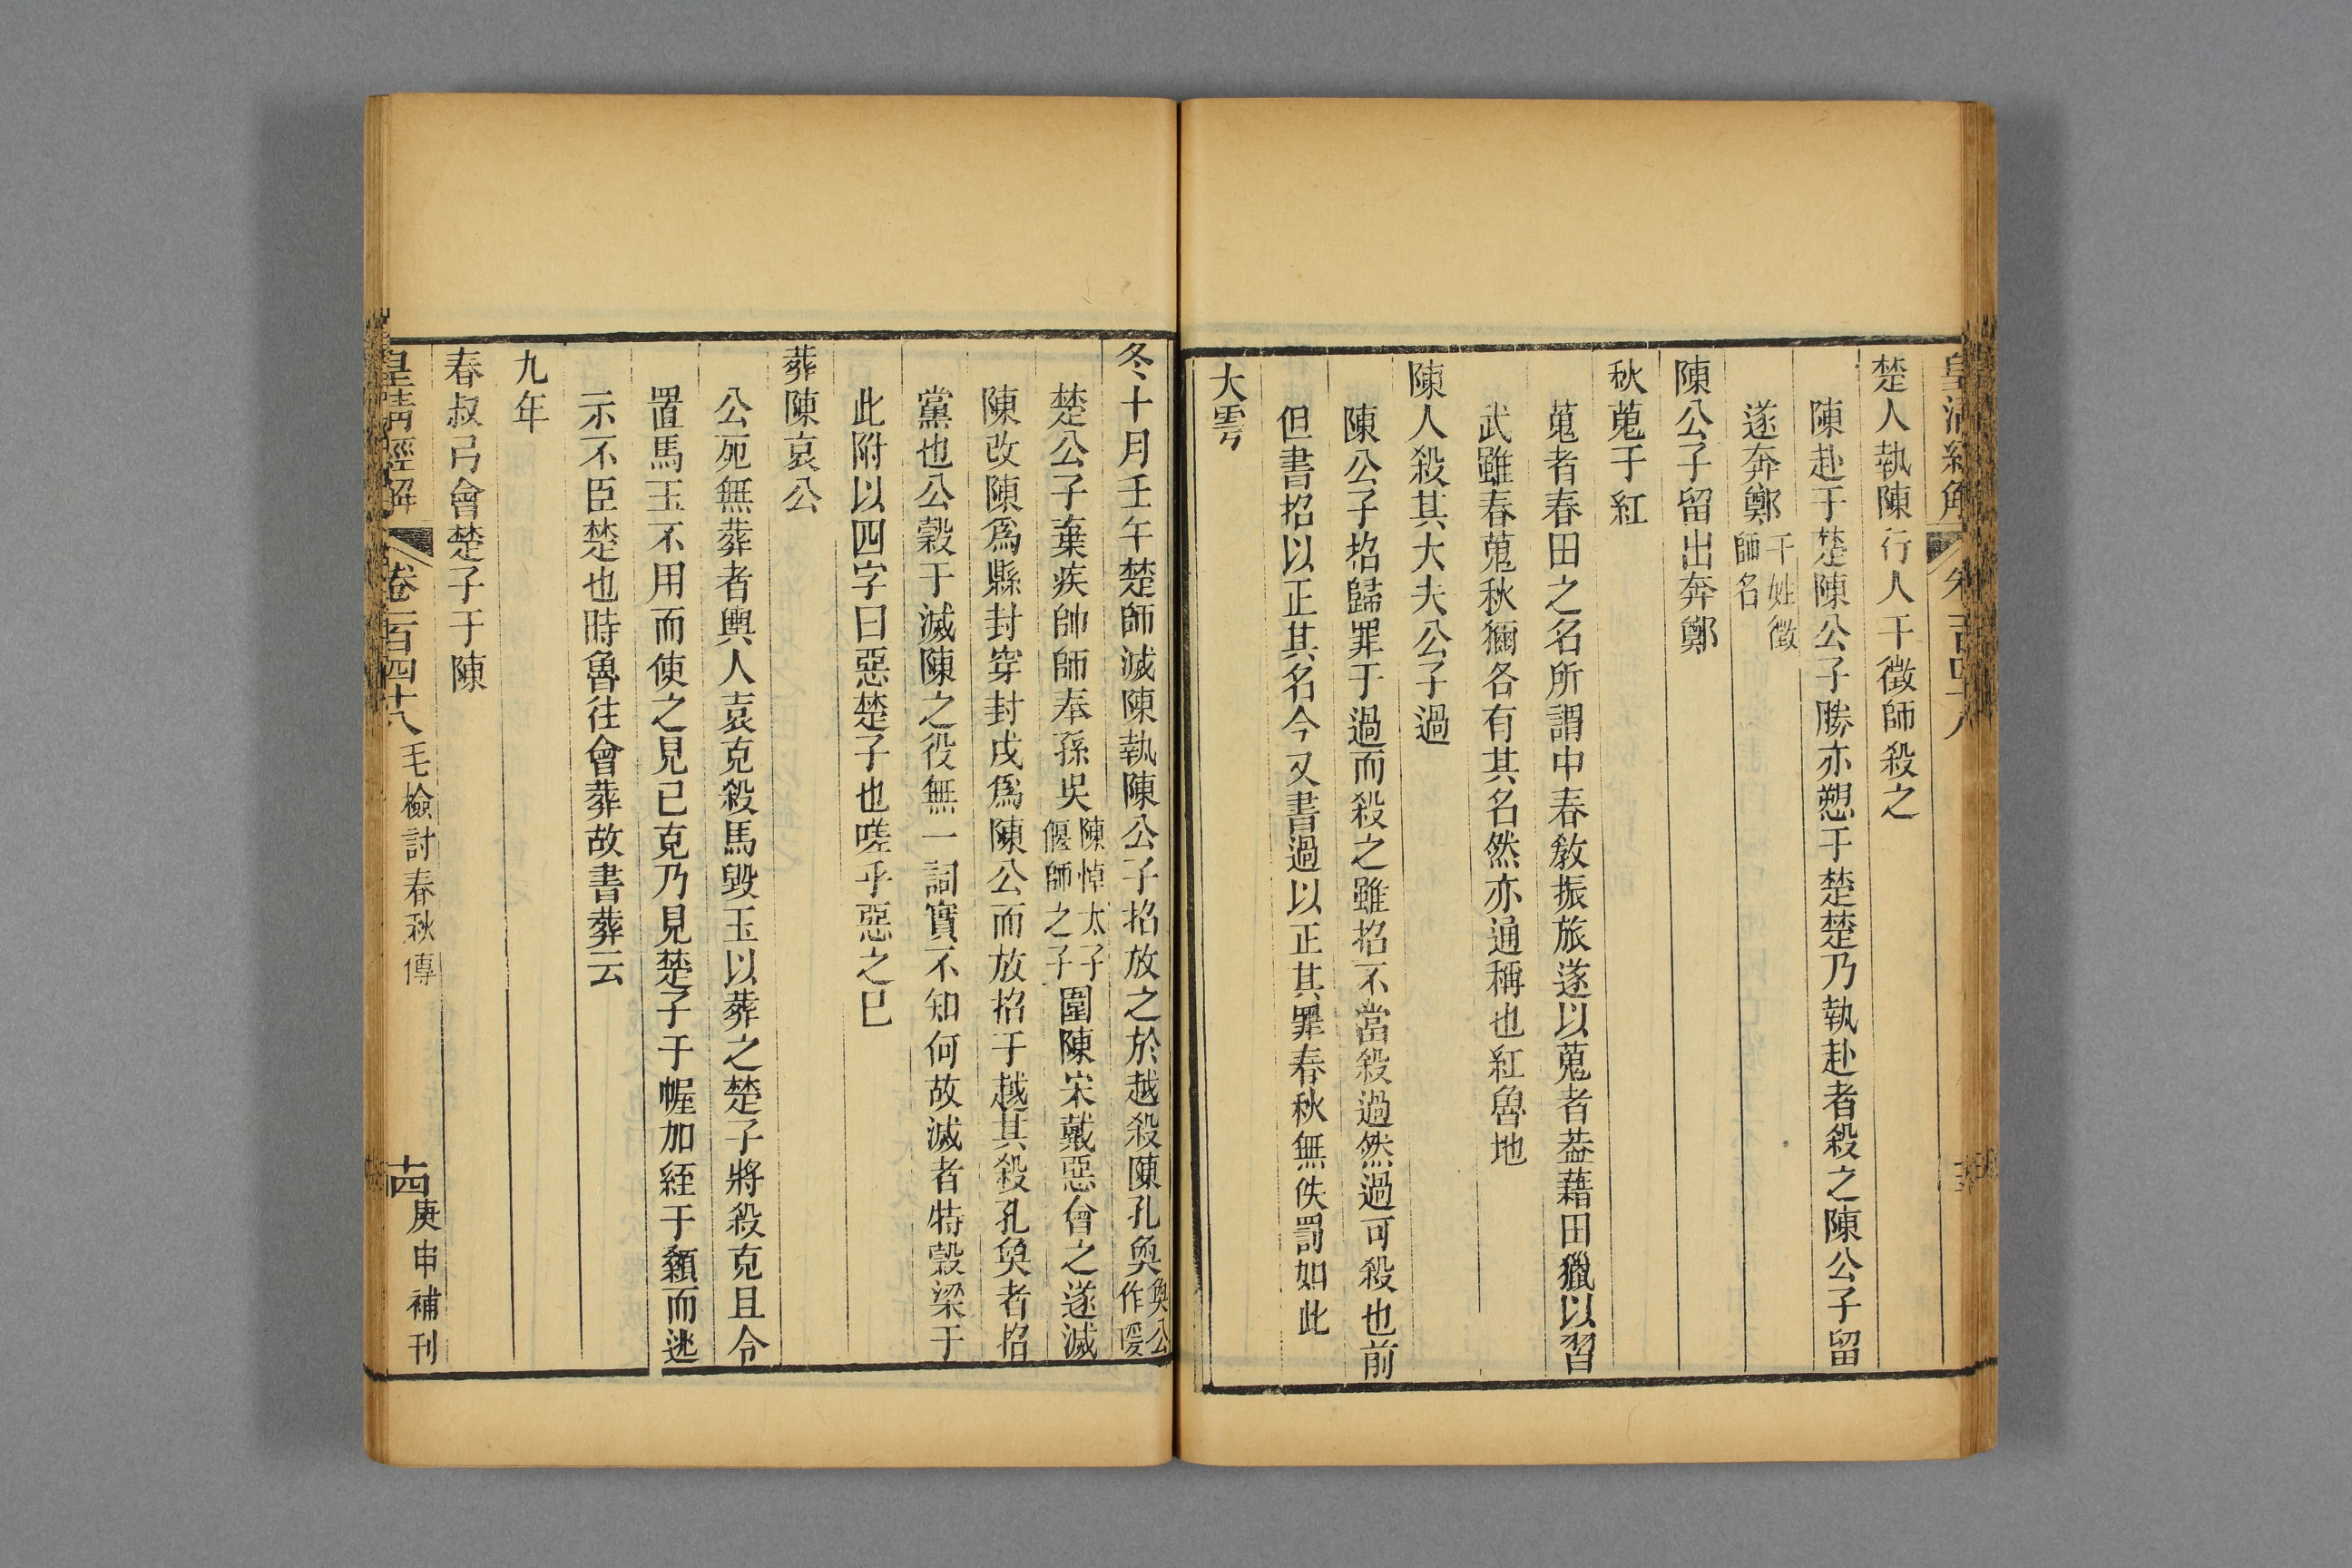 皇清經解 卷一百四十八
楚人執陳行人干徵師殺之
陳赴于楚陳公子勝亦愬于楚楚乃執赴者殺之陳公子留
遂奔鄭干姓徵師名
陳公子留出奔鄭
秋蒐于紅
蒐者春田之名所謂中春敎振旅遂以蒐者葢藉田獵以習
武雖春蒐秋獮各有其名然亦通稱也紅魯地
陳人殺其大夫公子過
陳公子招歸罪于過而殺之雖招不當殺過然過可殺也前
但書招以正其名今又書過以正其罪春秋無佚罰如此
大雩
冬十月壬午楚師滅陳執陳公子招放之於越殺陳孔奐奐公作瑗
楚公子棄疾帥師奉孫吳陳悼太子偃師之子圍陳宋戴惡會之遂滅
陳改陳爲縣封穿封戌爲陳公而放招于越其殺孔奐者招
黨也公穀于滅陳之役無一詞實不知何故滅者特穀梁于
此附以四字曰惡楚子也嗟乎惡之巳
葬陳哀公
公死無葬者輿人袁克殺馬毀玉以葬之楚子將殺克且令
置馬玉不用而使之見已克乃見楚子于幄加絰于顙而逃
示不臣楚也時魯往會葬故書葬云
九年
春叔弓會楚子于陳
皇淸經解 卷一百四十八 毛檢討春秋傳 十四 庚申補刊